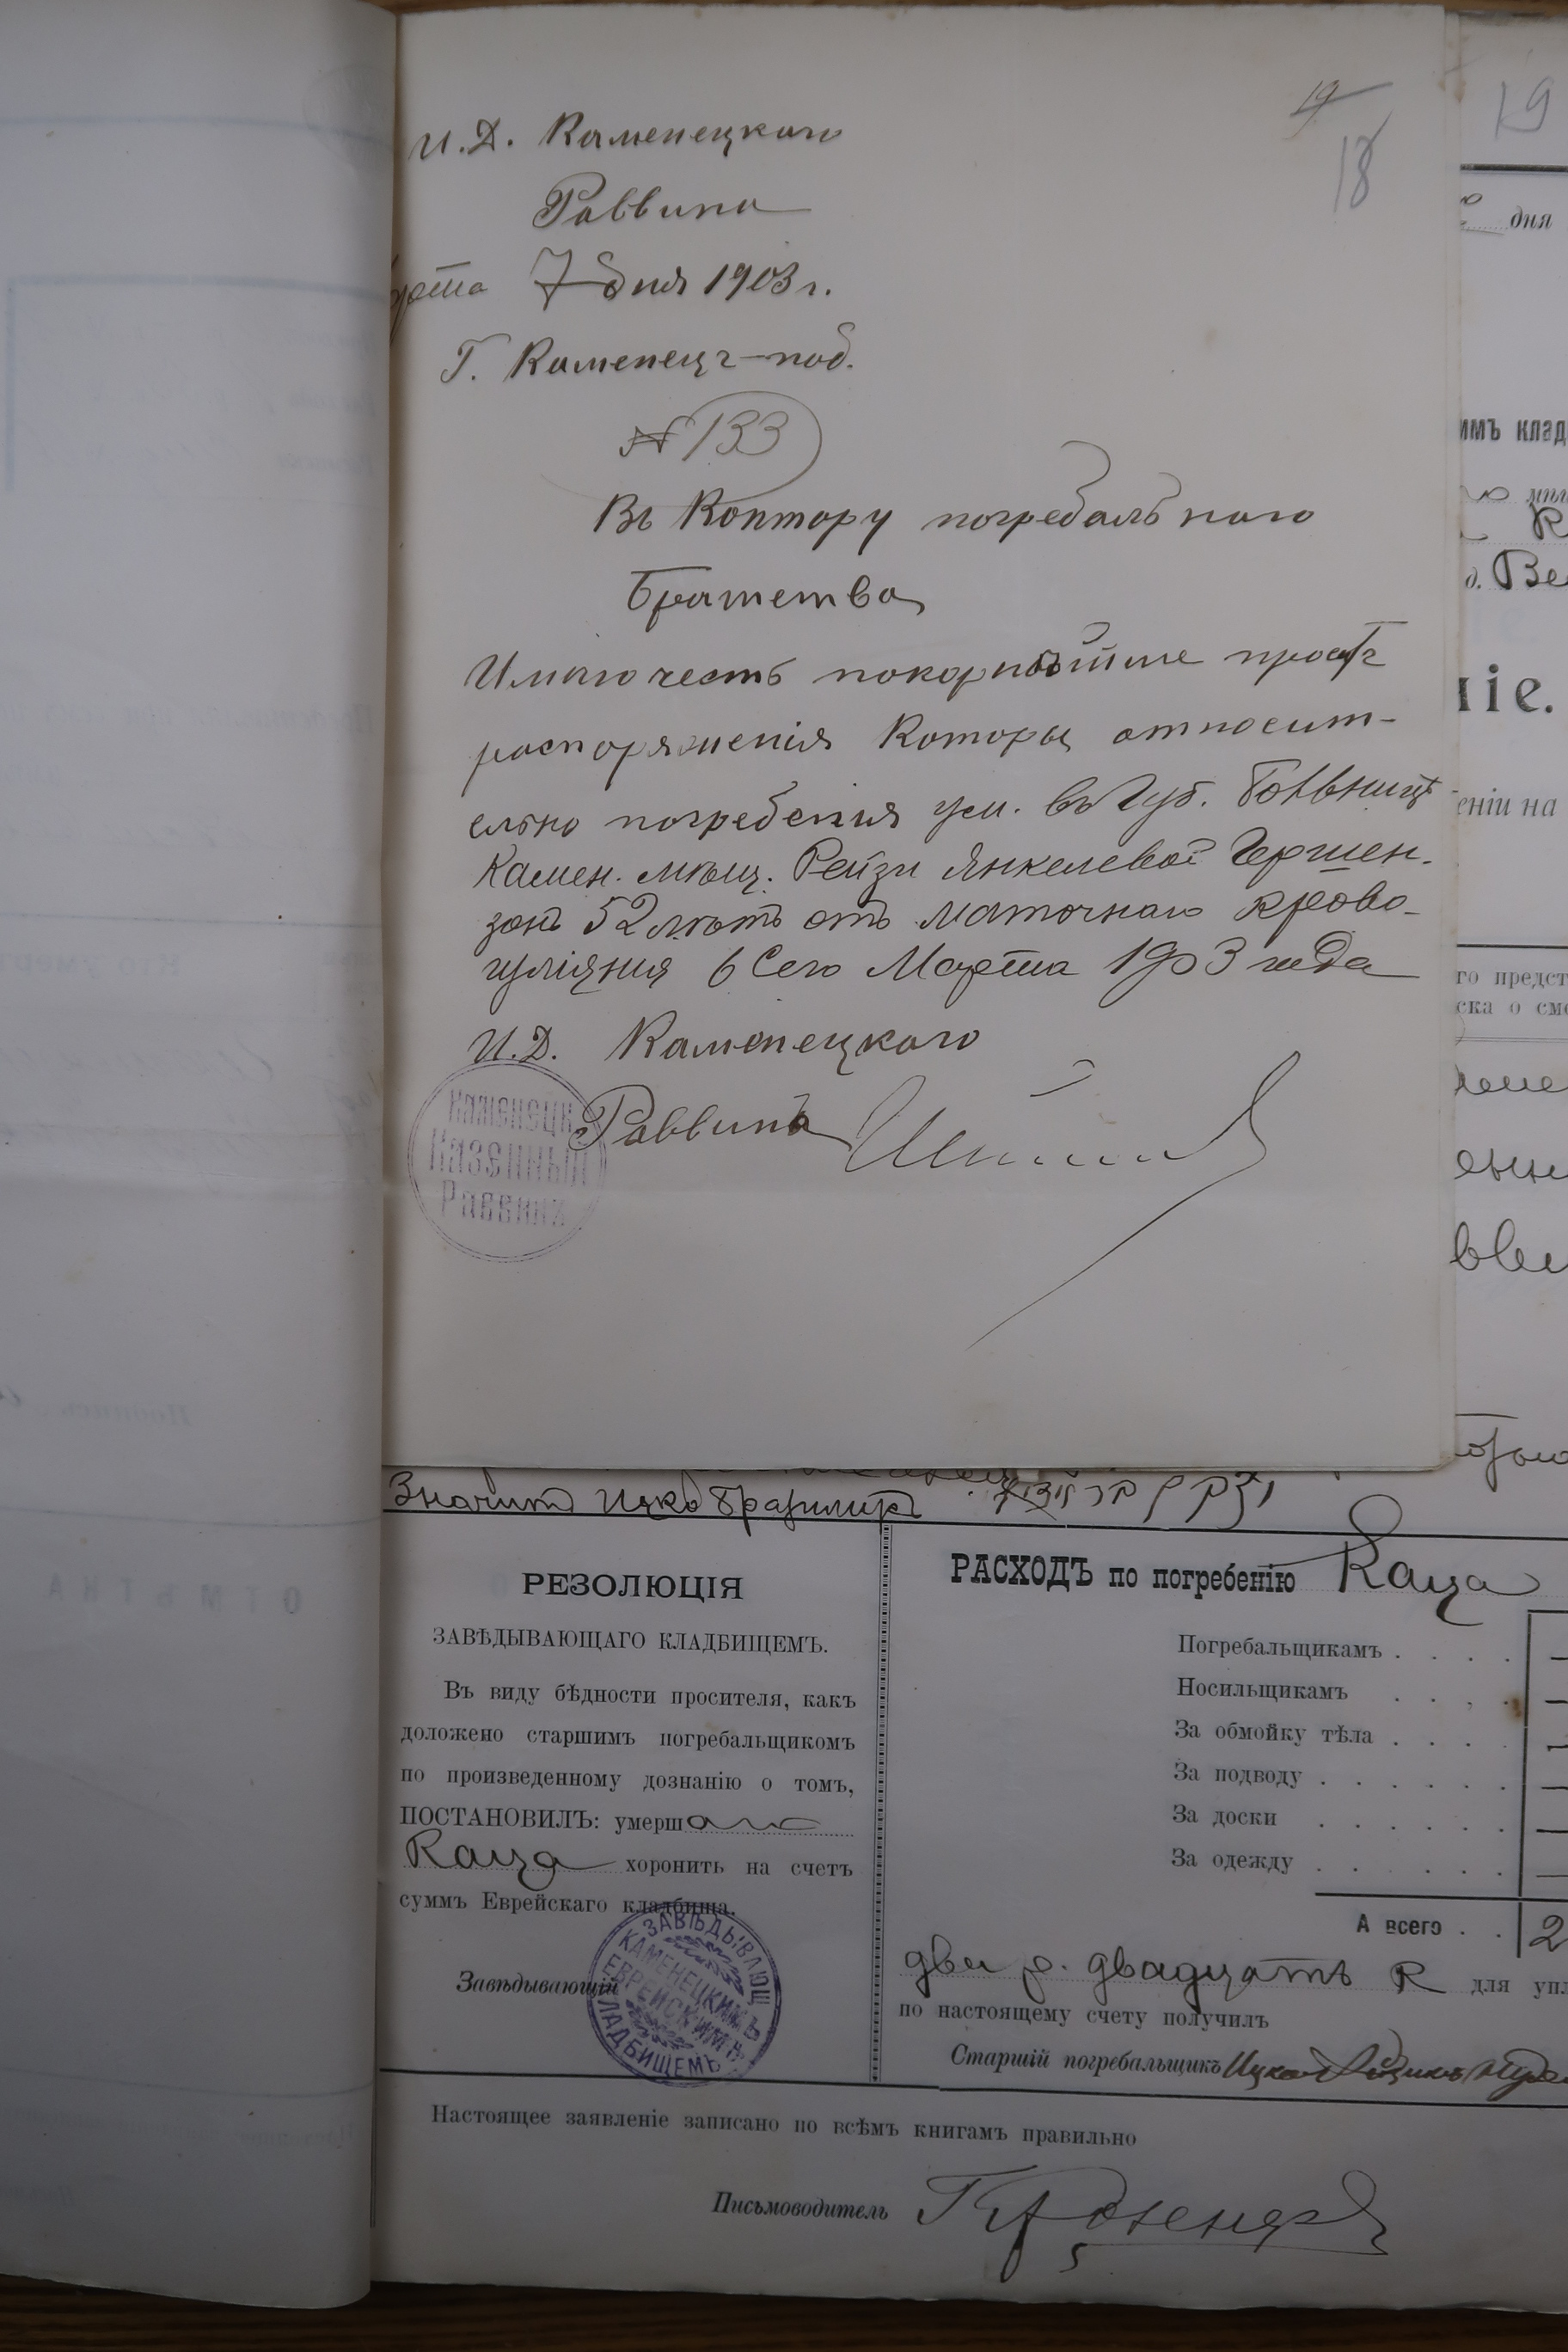 19
18
И.Д. Каменецкаго
Раввина
Марта 7 дня 1903 г.
Г. Каменецъ-под.
№ 133
Въ Контору погребальнаго
Братства
Имѣю честь покорнѣйше просить
распоряженія Конторы относит-
ельно погребенія ум. въ Губ. Больницѣ
Камен. мѣщ. Рейзи Янкелевой Гершен-
зонъ 52 лѣтъ отъ маточнаго крово-
изліянія 6 сего Марта 1903 года
И.Д. Каменецкаго
Раввина
Каменецк
Казенный
Раввинъ
19
дня
имъ клад
д. Ве
ніе.
еніи на
го предст
ска о сме
Значитъ Ицко
РЕЗОЛЮЦІЯ
ЗАВѢДЫВАЮЩАГО КЛАДБИЩЕМЪ.
Въ виду бѣдности просителя, какъ
доложено старшимъ погребальщикомъ
по произведенному дознанію о томъ,
ПОСТАНОВИЛЪ: умершаго
Каца хоронить на счетъ
суммъ Еврейскаго кладбища.
Завѣдывающій
ЗАВѢДЫВЛЮЩ
КАМЕНЕЦКИМЪ
ЕВРЕЙСКИМЪ
КЛАДБИЩЕМЪ
РАСХОДЪ по погребенію Каца
Погребальщикамъ . . . .
Носильщикамъ . . . .
За обмойку тѣла . . . .
За подводу . . . . . .
За доски . . . . . .
За одежду . . . . . .
А всего . . 2
два р. двадцать к для упл
по настоящему счету получилъ
Старшій погребальщикъ Ицко
Настоящее заявленіе записано по всѣмъ книгамъ правильно
Письмоводитель